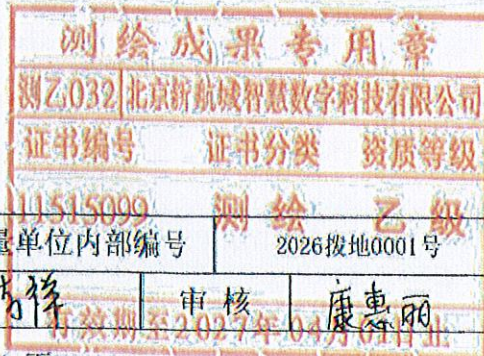 测绘成果专用章
测乙032 北京新航城智慧数字科技有限公司
证书编号 证书分类 资质等级
11515099 测绘 乙级
量单位内部编号 2026拨地0001号
审核 康惠丽
有效期至2027年04月